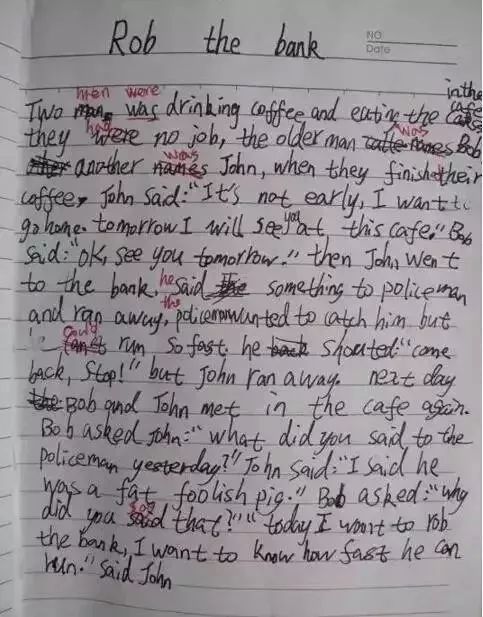 Rob the bank
NO
Date
men were in the
Two man was drinking coffee and eating the cafe
had was
they were no job, the older man names Bob
was
another names John, when they finished their
coffee, John said: "It's not early, I want to
you
go home. tomorrow I will see at this cafe." Bob
said: "OK, see you tomorrow." then John went
he
to the bank, said something to policeman
the
and ran away, policeman wanted to catch him but
could
run so fast. he back shouted: "come
back, Stop!" but John ran away. next day
the Bob and John met in the cafe again.
Bob asked John: "what did you said to the
policeman yesterday?" John said: "I said he
was a fat foolish pig." Bob asked: "why
say
did you said that?" "today I want to rob
the bank, I want to know how fast he can
run." said John